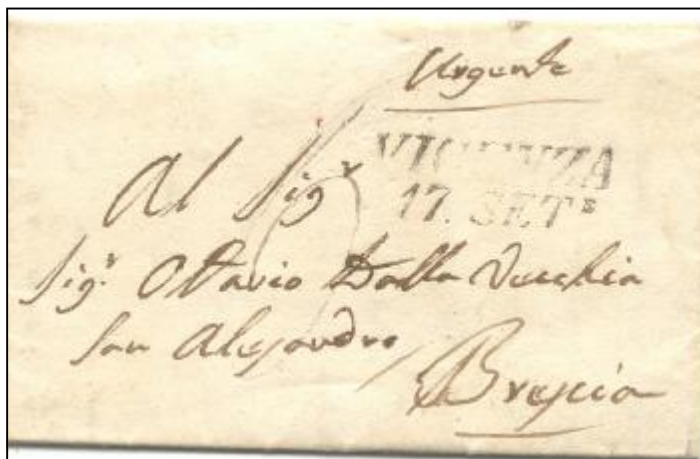 Urgente
VICENZA
17. SETᴱ
Al Sigʳ
Sigʳ Ottavio Dalla Vecchia
San Alessandro
Brescia